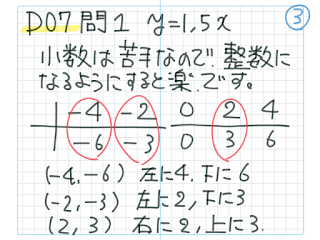 DO7 問1 y=1,5x ③
小数は苦手なので、整数に
なるようにすると楽です。
-4 -2 0 2 4
-6 -3 0 3 6
(-4,-6) 左に4,下に6
(-2,-3) 左に2,下に3
(2, 3) 右に2,上に3.